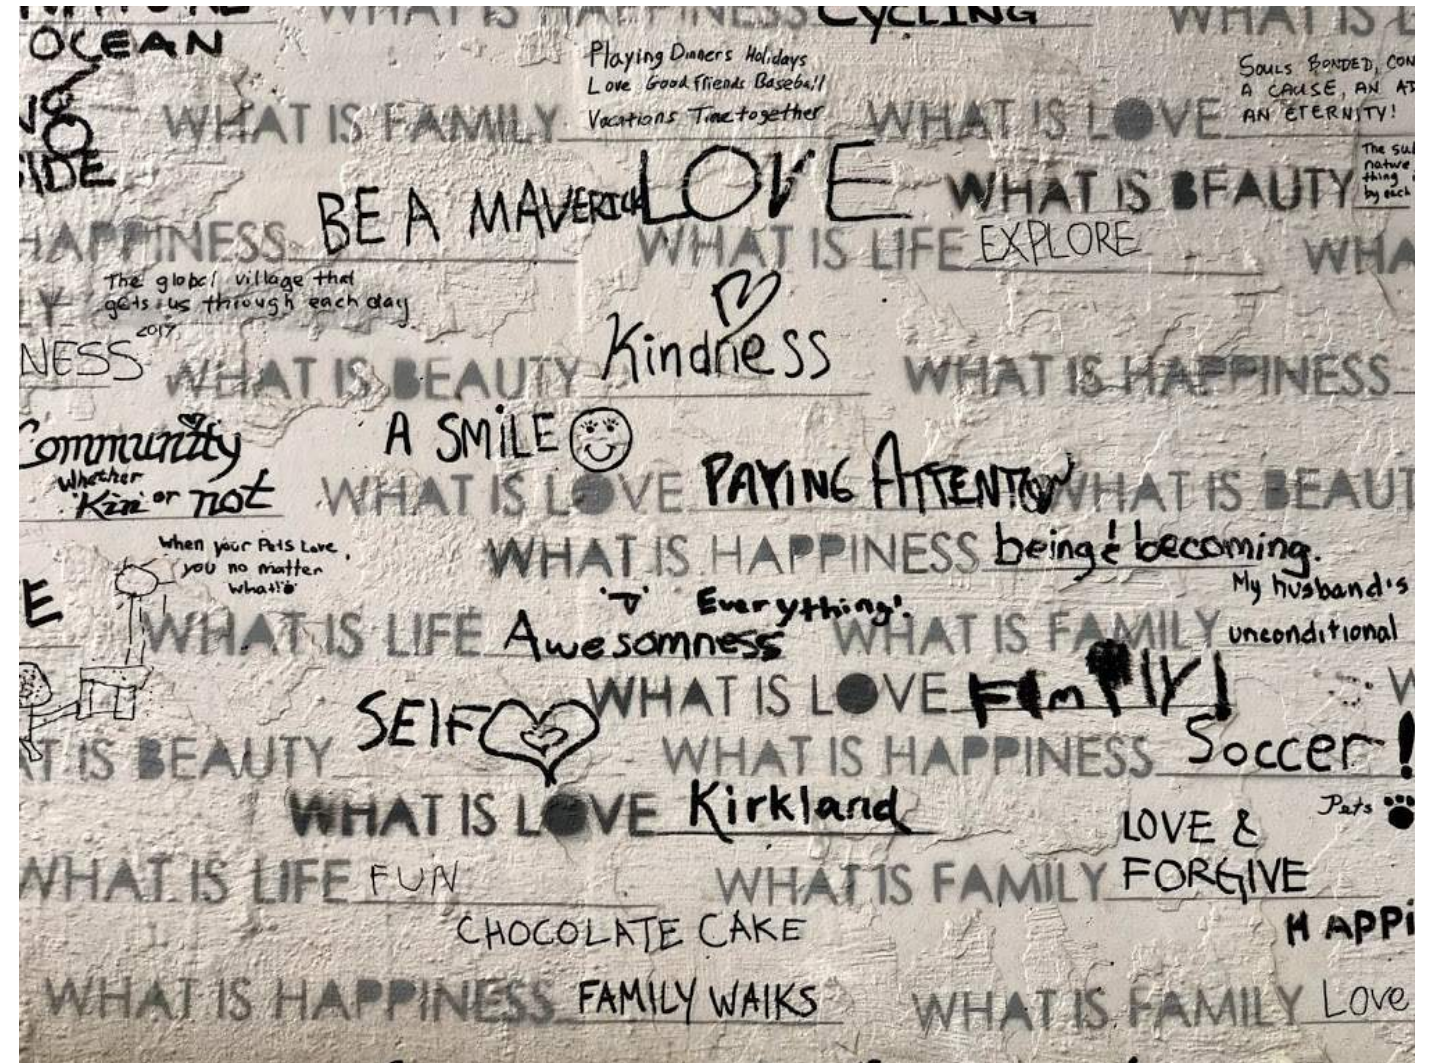 WHAT IS HAPPINESS CYCLING
WHAT IS
OCEAN
Playing Dinners Holidays
Love Good friends Baseball
Vacations Time together
SOULS BONDED, CON
A CAUSE, AN
AN ETERNITY!
WHAT IS FAMILY
WHAT IS LOVE
IDE
LOVE
BE A MAVERICK
WHAT IS BEAUTY
The
nature
thing
by each
HAPPINESS
WHAT IS LIFE EXPLORE
WHA
The global village that
gets us through each day
2017
Y
NESS
WHAT IS BEAUTY Kindness
WHAT IS HAPPINESS
Community
Whether
"Kin" or not
A SMiLE
WHAT IS LOVE PAYING ATTENTION
WHAT IS BEAUT
When your Pets Love
you no matter
what!
WHAT IS HAPPINESS being & becoming.
E
My husband's
Everything!
WHAT IS LIFE Awesomness
WHAT IS FAMILY unconditional
WHAT IS LOVE
W
SElF
T IS BEAUTY
WHAT IS HAPPINESS Soccer!
WHAT IS LOVE Kirkland
Pets
LOVE &
FORGIVE
WHAT IS LIFE FUN
WHAT IS FAMILY
CHOCOLATE CAKE
HAPPi
WHAT IS HAPPINESS FAMILY WAlKS
WHAT IS FAMILY Love